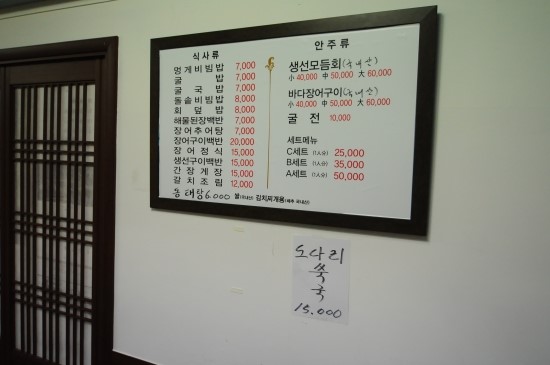 식사류
멍게비빔밥 7,000
굴 밥 7,000
굴 국 밥 7,000
돌솥비빔밥 8,000
회 덮 밥 8,000
해물된장백반 7,000
장어추어탕 7,000
장어구이백반 20,000
장 어 정 식 15,000
생선구이백반 15,000
간 장 게 장 15,000
갈 치 조 림 12,000
동태탕 6.000
쌀(국내산) 김치찌개용
안주류
생선모듬회(국내산)
小 40,000 中 50,000 大 60,000
바다장어구이(국내산)
小 40,000 中 50,000 大 60,000
굴 전 10,000
세트메뉴
C세트 (1人分) 25,000
B세트 (1人分) 35,000
A세트 (1人分) 50,000
도다리
쑥
국
15.000